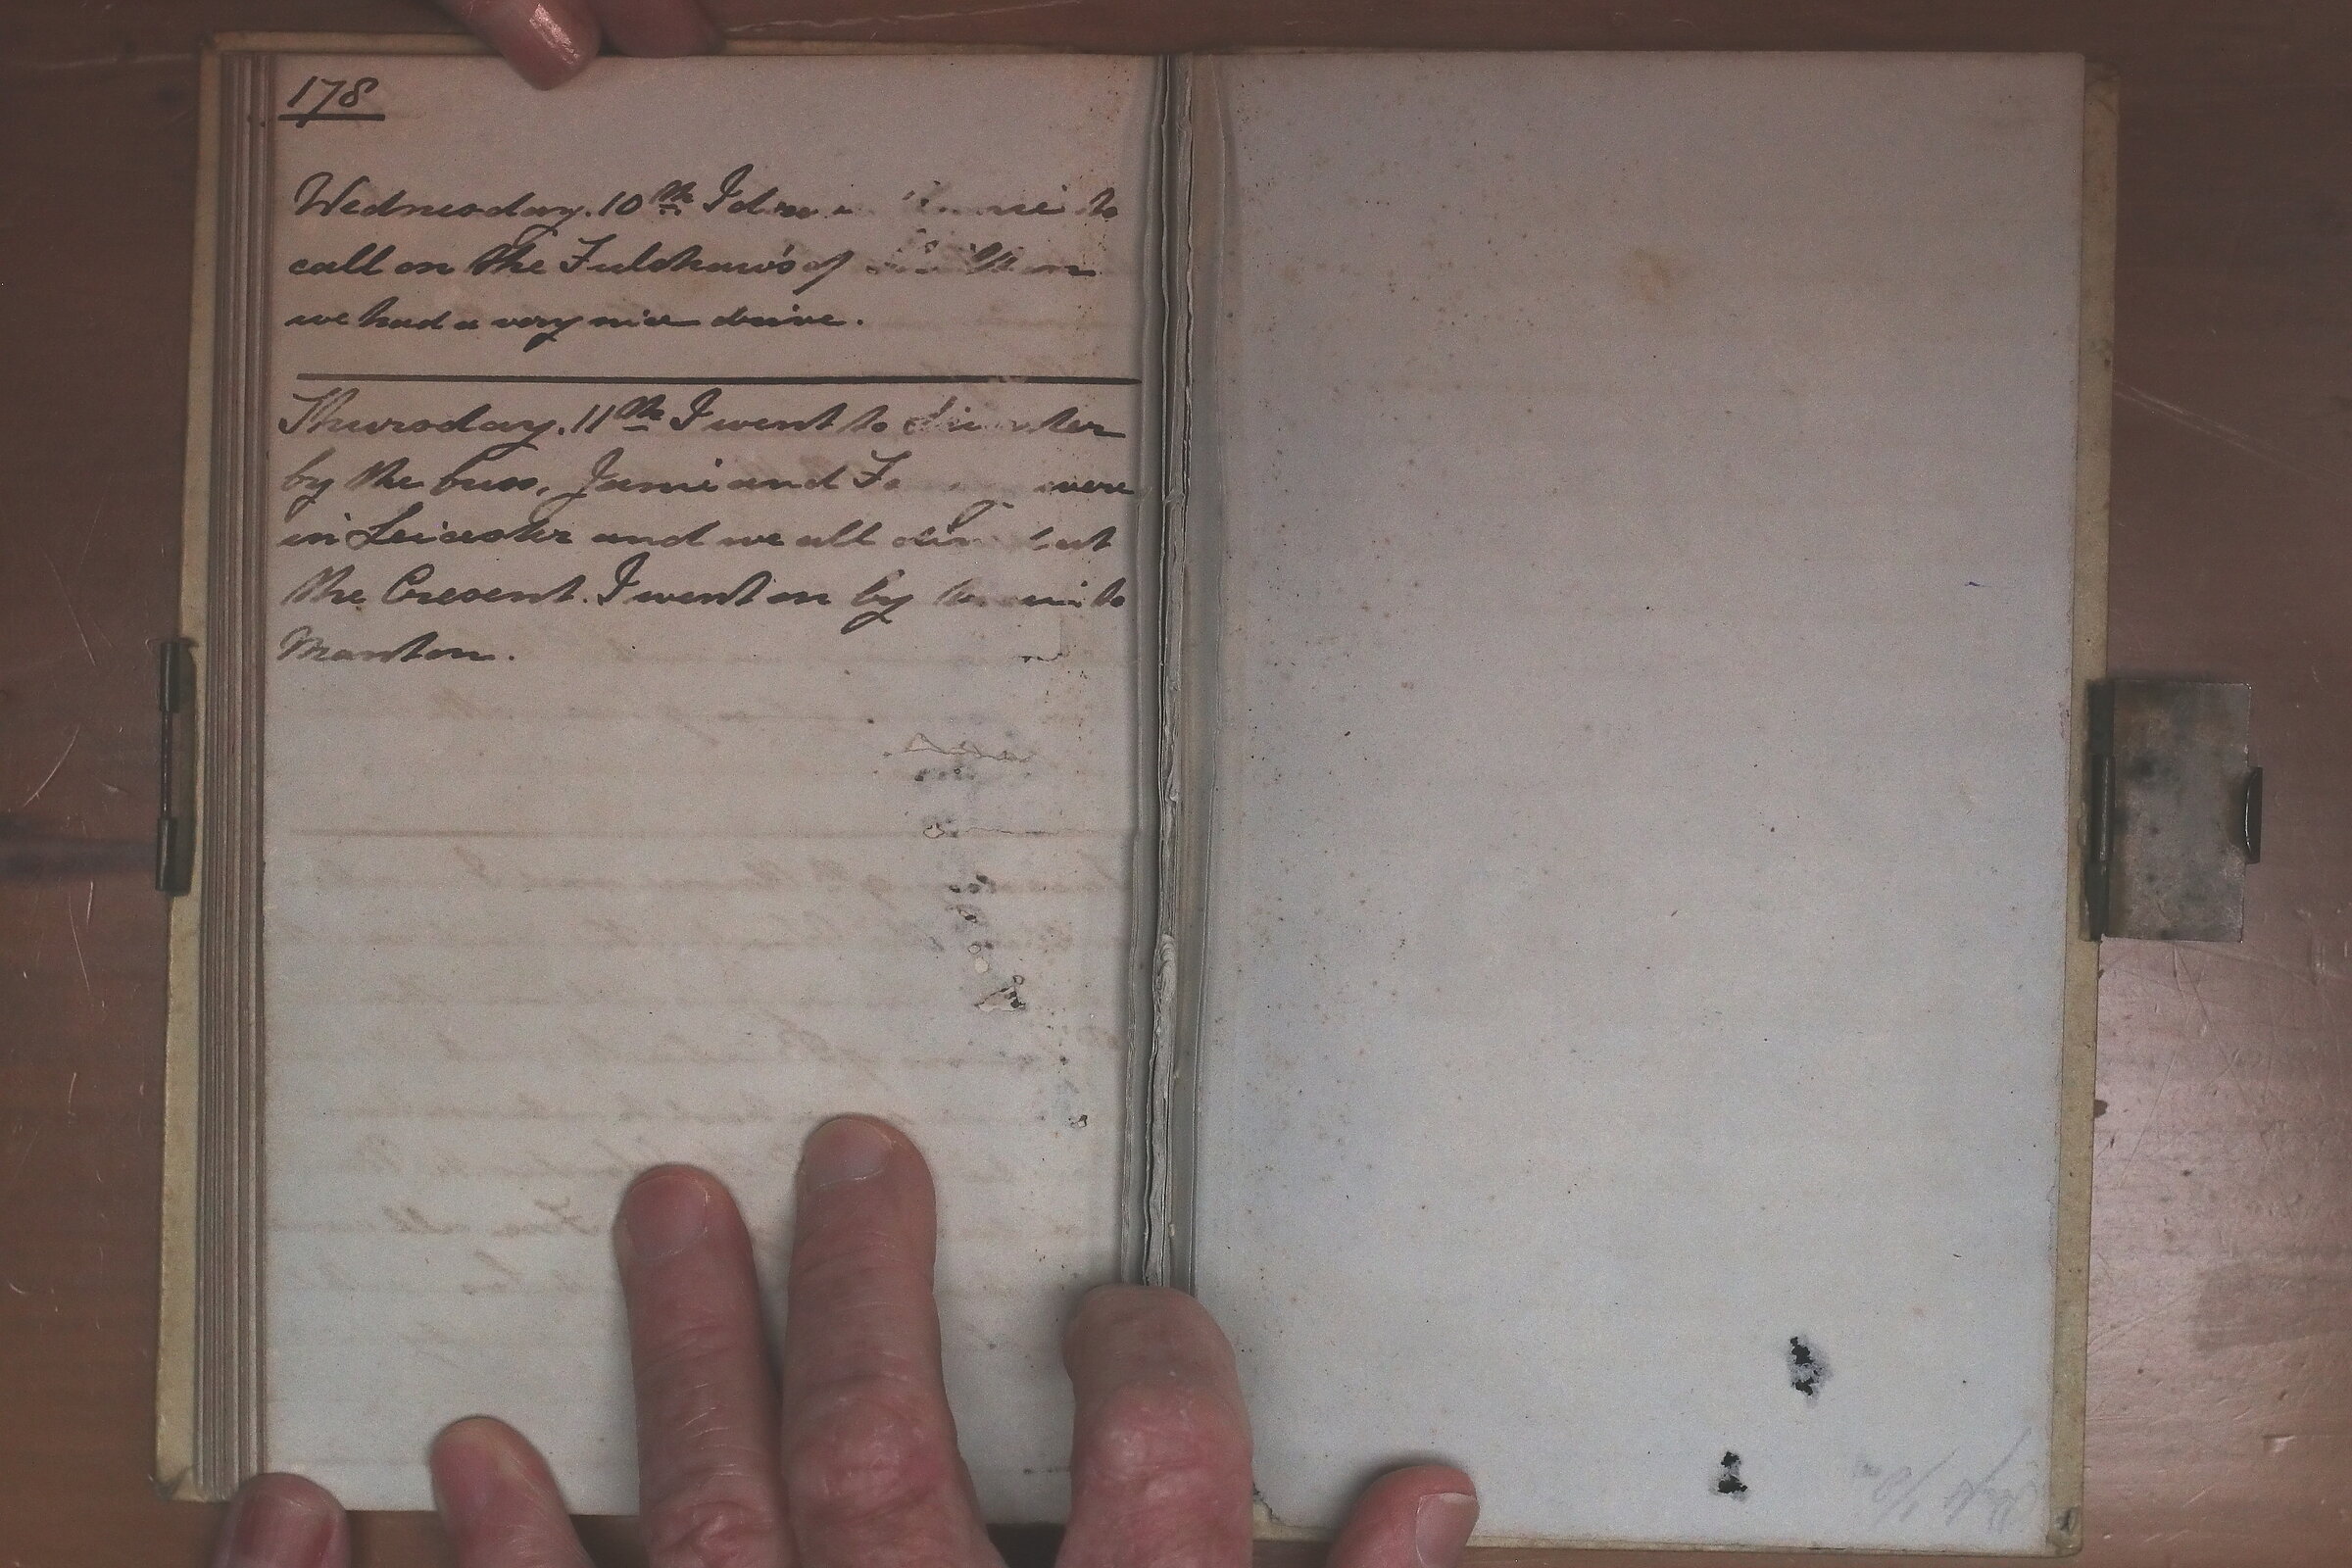 178
Wednesday. 10th I drove to
call on the Fulshaw's of
we had a very nice drive.
Thursday. 11th I went to Leicester
by the buss, Jamie and were
in Leicester and we all dined at
the Cresent. I went on by train to
Manton.